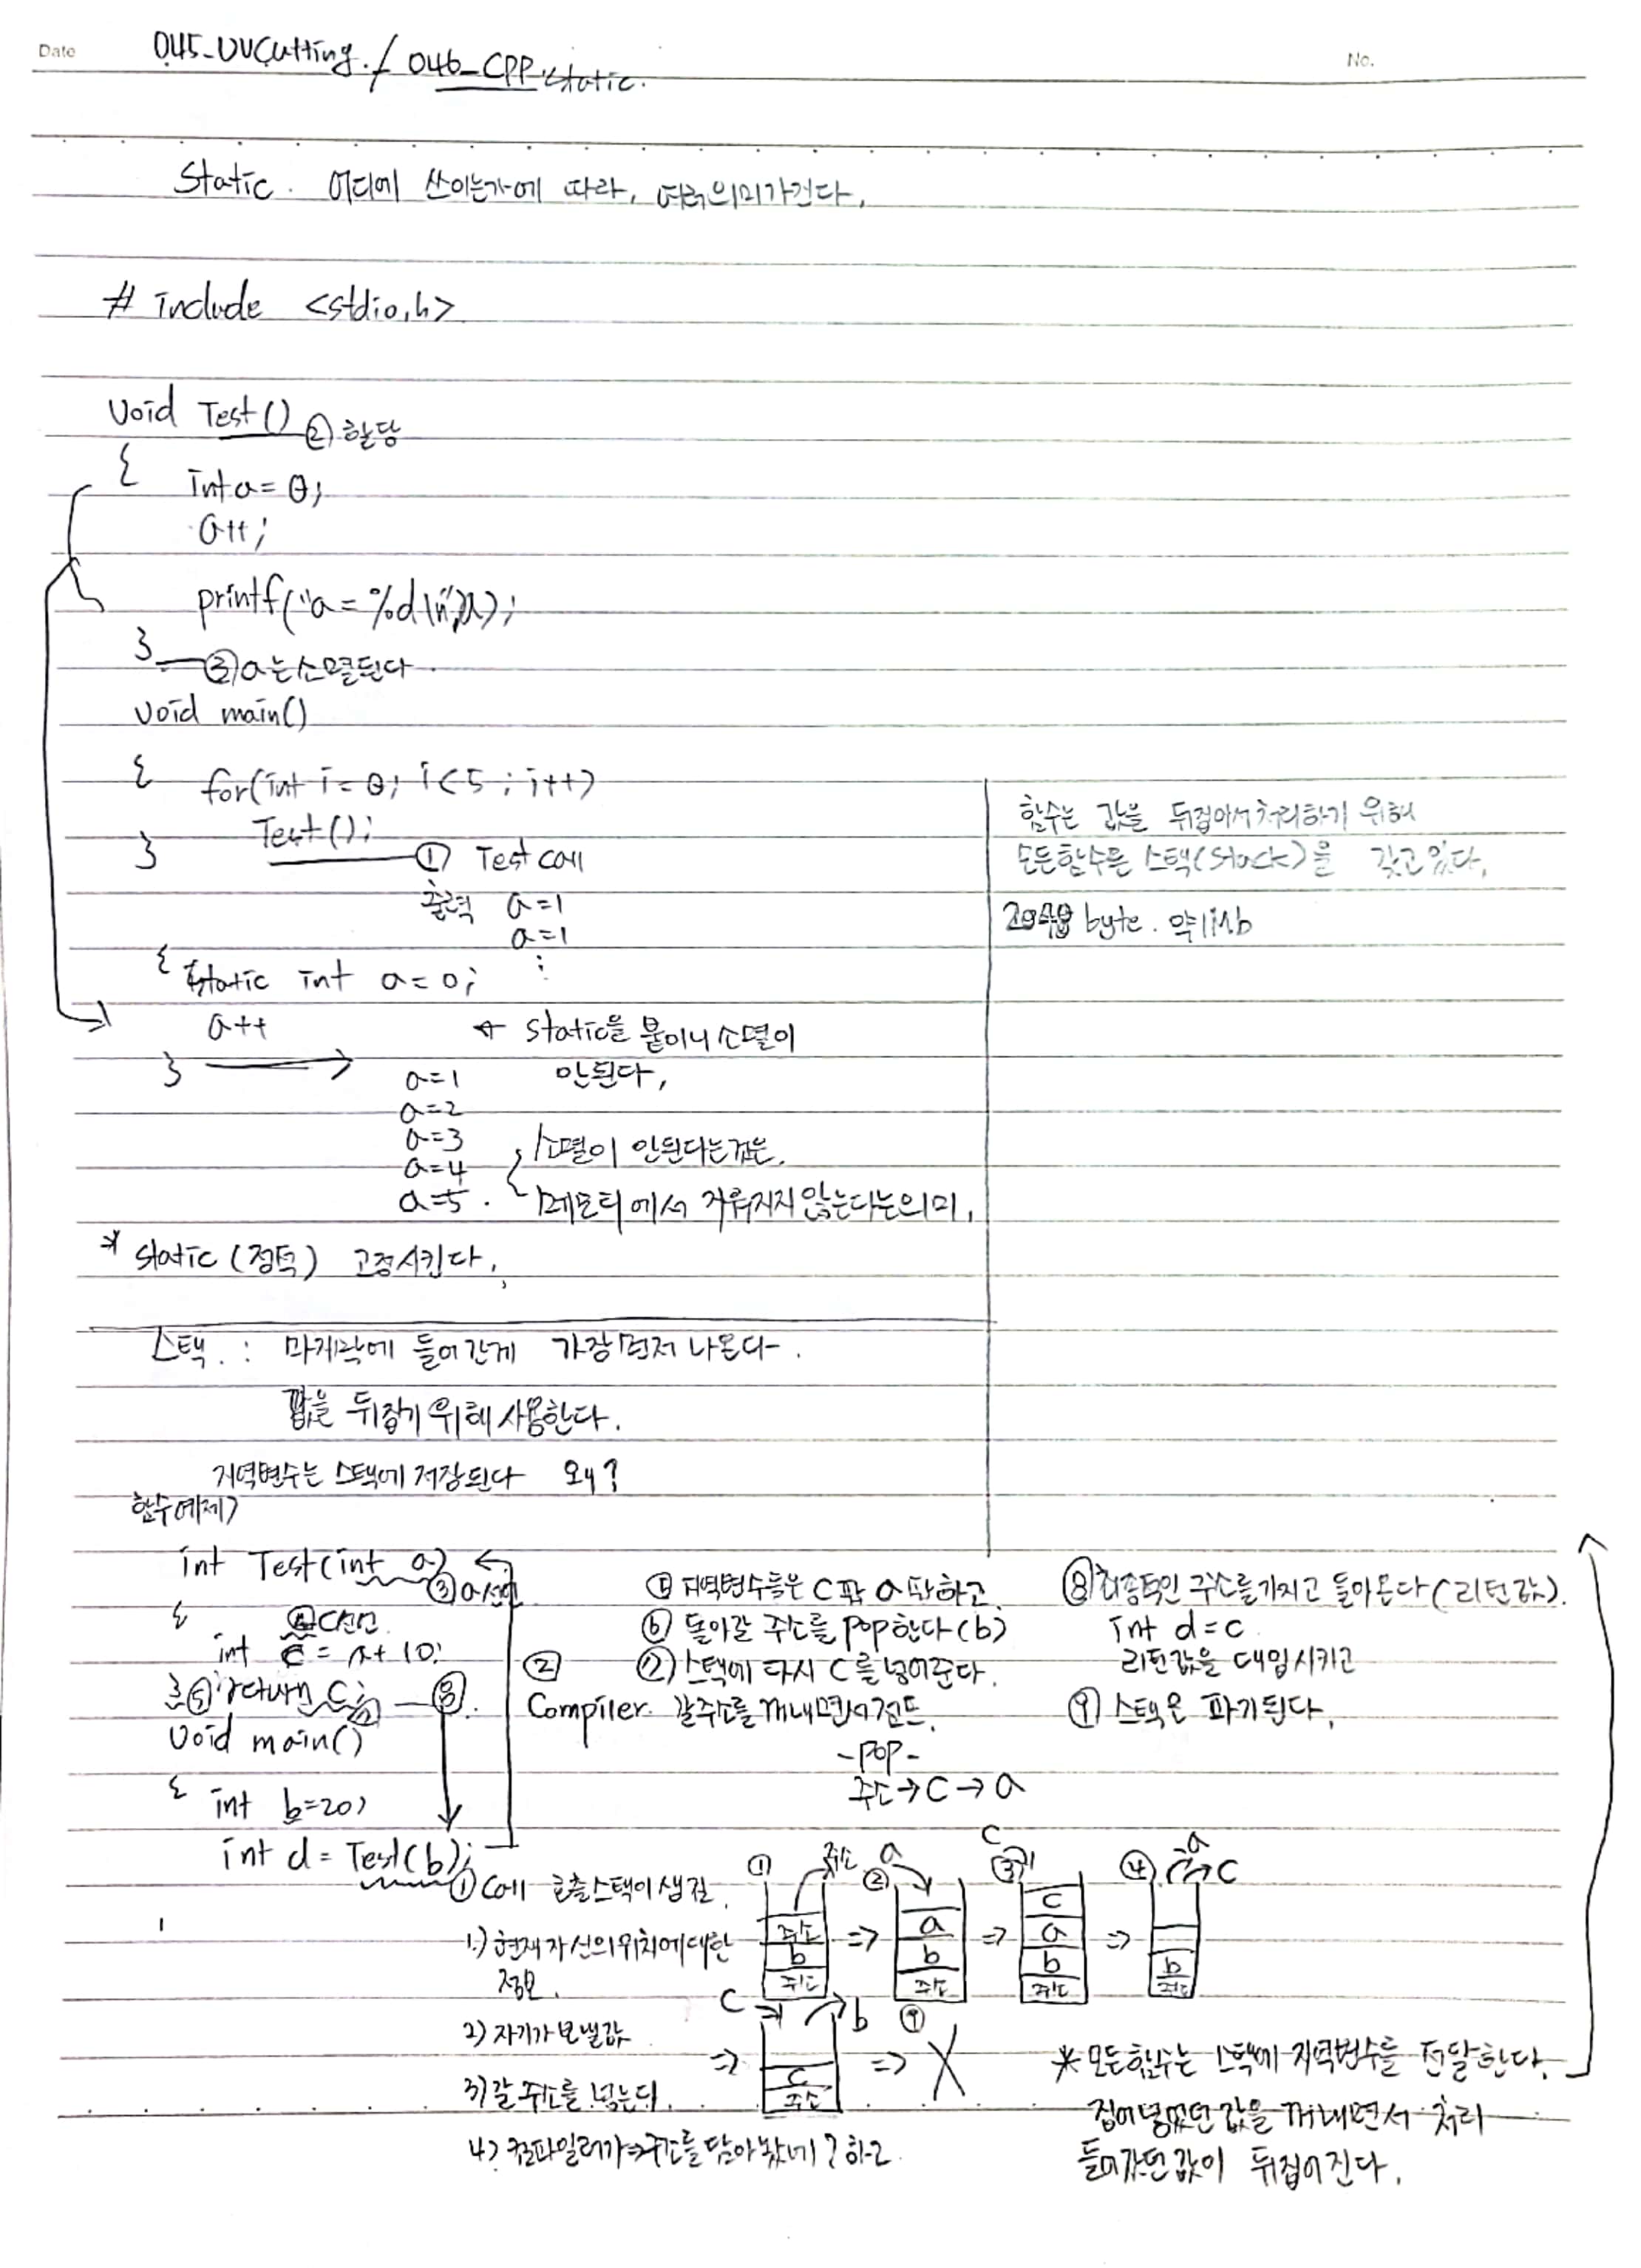 Date
No.
045_UVCutting. / 046_CPP static.
Static. 어디에 쓰이는가에 따라, 여러의미가진다.
# include <stdio.h>
void Test() ② 할당
{
int a = 0;
a++;
printf("a = %d\n", a);
}
a는 소멸된다.
void main()
{
for(int i = 0; i < 5; i++)
Test();
① Test call
}
출력 a=1
a=1
⋮
{
static int a = 0;
a++
}
static을 붙이니 소멸이
안된다,
a=1
a=2
a=3
a=4
a=5.
소멸이 안된다는것은.
메모리에서 지워지지 않는다는의미.
* static (정적) 고정시킨다.
함수는 값을 뒤집어서처리하기 위해
모든함수는 스택(stack)을 갖고있다.
byte. 약
스택. : 마지막에 들어간게 가장먼저 나온다.
값을 뒤집기 위해 사용한다.
지역변수는 스택에 저장된다 왜?
함수예제)
int Test(int a)
③ a선언
{
④ C선언
int c = a + 10;
} ⑤ return C; ⑧
void main()
{
int b=20;
int d = Test(b);
① call 호출스택이 생김.
1.) 현재자신의위치에대한
정보.
2) 자기가 보낼값
3) 갈 주소를 넣는다.
4) 컴파일러가 주소를 담아놨네? 하고
②
Compiler. 갈주소를 꺼내면서 점프.
-POP-
주소→C→a
지역변수들은 C팝 a팝하고
⑥ 돌아갈 주소를 POP한다(b)
⑦ 스택에 다시 C를 넣어준다.
⑧ 최종적인 주소를가지고 돌아온다(리턴값).
int d=c
리턴값을 대입시키고
⑨ 스택은 파기된다.
① 주소 주소 b 주소
⇒
② a a b 주소
⇒
③ C c a b 주소
⇒
④ a C b 주소
⇒
C b c 주소
⇒
⑨ X
* 모든함수는 스택에 지역변수를 전달한다.
집어넣었던 값을 꺼내면서 처리
들어갔던 값이 뒤집어진다.